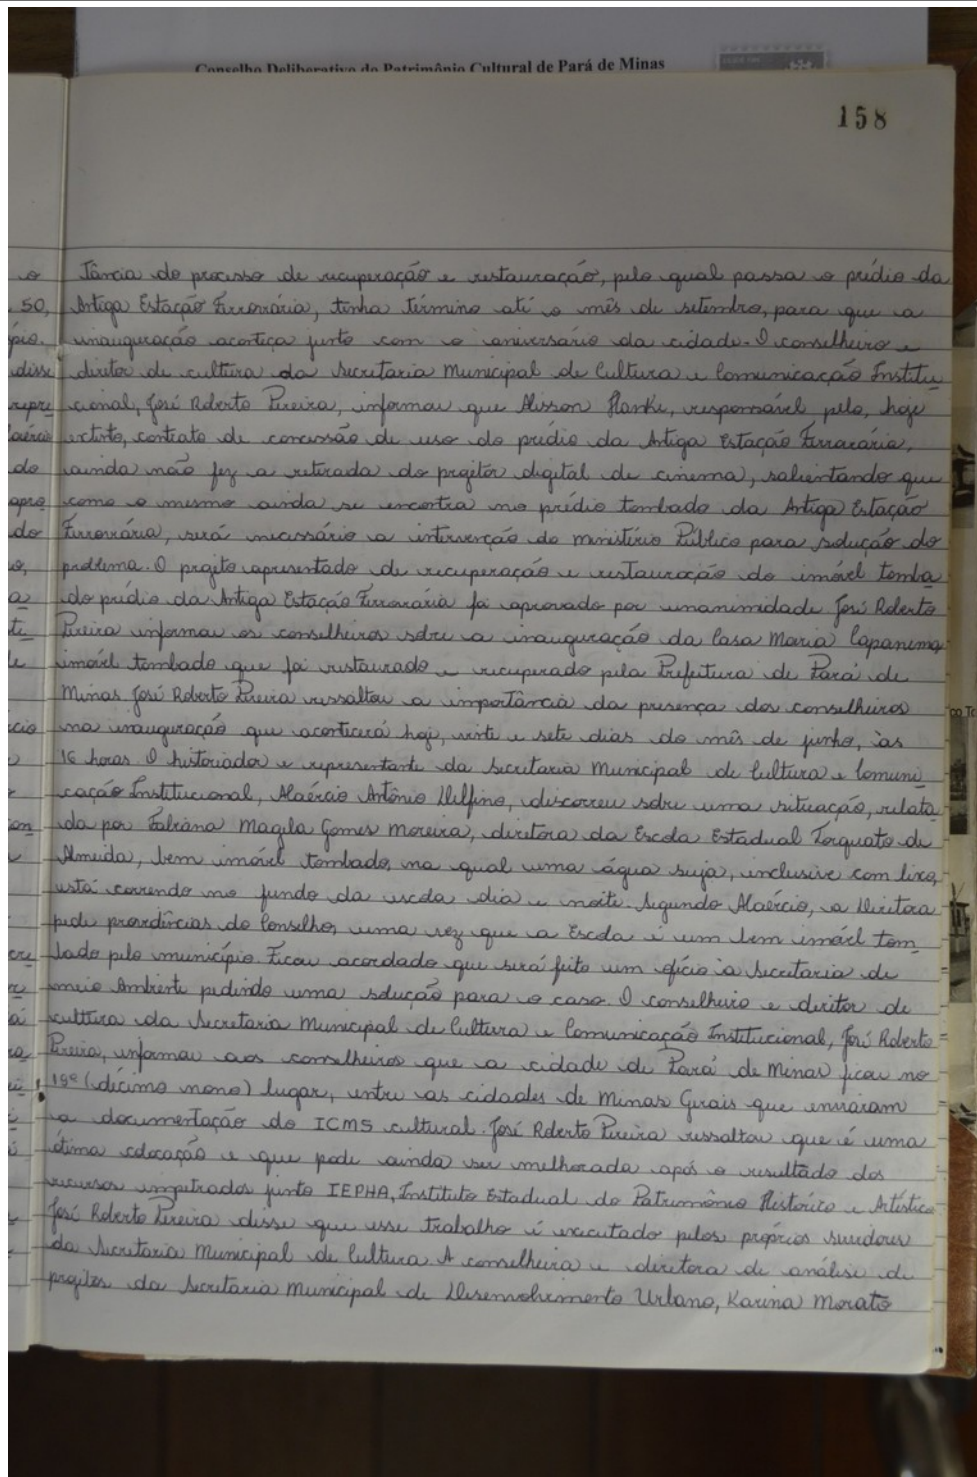 Conselho Deliberativo do Patrimônio Cultural de Pará de Minas
158
tância do processo de recuperação e restauração, pelo qual passa o prédio da
Antiga Estação Ferroviária, tenha término até o mês de setembro, para que a
inauguração aconteça junto com o aniversário da cidade. O conselheiro e
diretor de cultura da Secretaria Municipal de Cultura e Comunicação Institu
cional, José Roberto Pereira, informou que Alisson Hanke, responsável pelo, hoje
extinto, contrato de concessão de uso do prédio da Antiga Estação Ferroviária,
ainda não fez a retirada do projetor digital de cinema, salientando que
como o mesmo ainda se encontra no prédio tombado da Antiga Estação
Ferroviária, será necessário a intervenção do Ministério Público para solução do
problema. O projeto apresentado de recuperação e restauração do imóvel tomba
do prédio da Antiga Estação Ferroviária foi aprovado por unanimidade José Roberto
Pereira informou os conselheiros sobre a inauguração da Casa Maria Capanema
imóvel tombado que foi restaurado e recuperado pela Prefeitura de Pará de
Minas. José Roberto Pereira ressaltou a importância da presença dos conselheiros
na inauguração que acontecerá hoje, vinte e sete dias do mês de junho, às
16 horas. O historiador e representante da Secretaria Municipal de Cultura e Comuni
cação Institucional, Alaércio Antônio Delfino, discorreu sobre uma situação, relata
da por Fabiana Magela Gomes Moreira, diretora da Escola Estadual Torquato de
Almeida, bem imóvel tombado, na qual uma água suja, inclusive com lixo,
está correndo no fundo da escola dia e noite. Segundo Alaércio, a Diretora
pede providências do Conselho, uma vez que a Escola é um bem imóvel tom
bado pelo município. Ficou acordado que será feito um ofício à Secretaria de
Meio Ambiente pedindo uma solução para o caso. O conselheiro e diretor de
cultura da Secretaria Municipal de Cultura e Comunicação Institucional, José Roberto
Pereira, informou aos conselheiros que a cidade de Pará de Minas ficou no
19º (décimo nono) lugar, entre as cidades de Minas Gerais que enviaram
a documentação do ICMS cultural. José Roberto Pereira ressaltou que é uma
ótima colocação e que pode ainda ser melhorada após o resultado dos
recursos impetrados junto IEPHA, Instituto Estadual do Patrimônio Histórico e Artístico
José Roberto Pereira disse que esse trabalho é executado pelos próprios servidores
da Secretaria Municipal de Cultura A conselheira e diretora de análise de
projetos da Secretaria Municipal de Desenvolvimento Urbano, Karina Morato